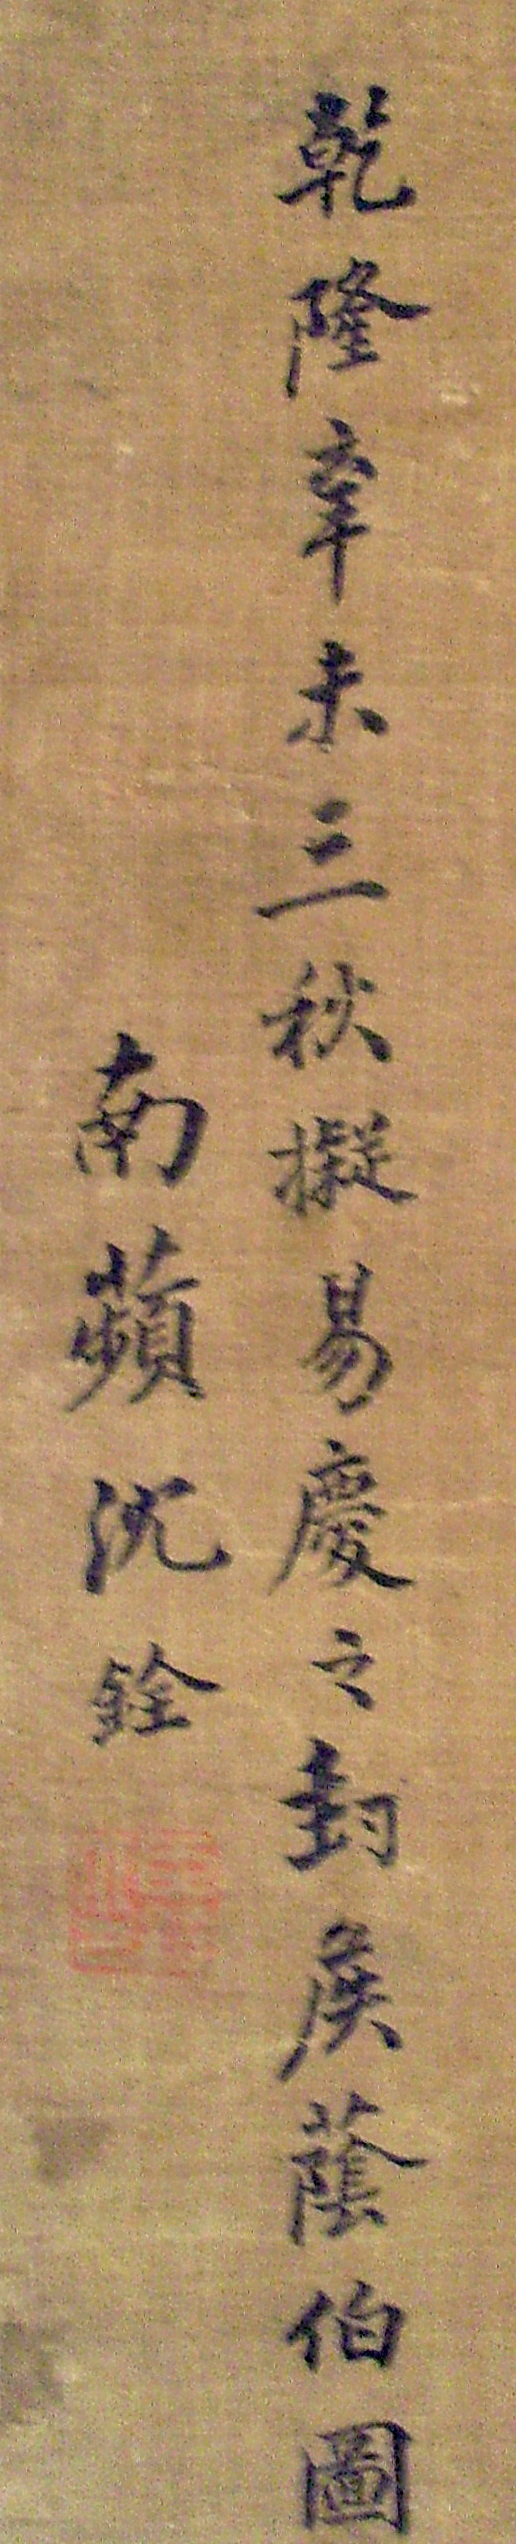 乾隆辛未三秋擬易慶之封矦蔭伯圖
南蘋沈銓